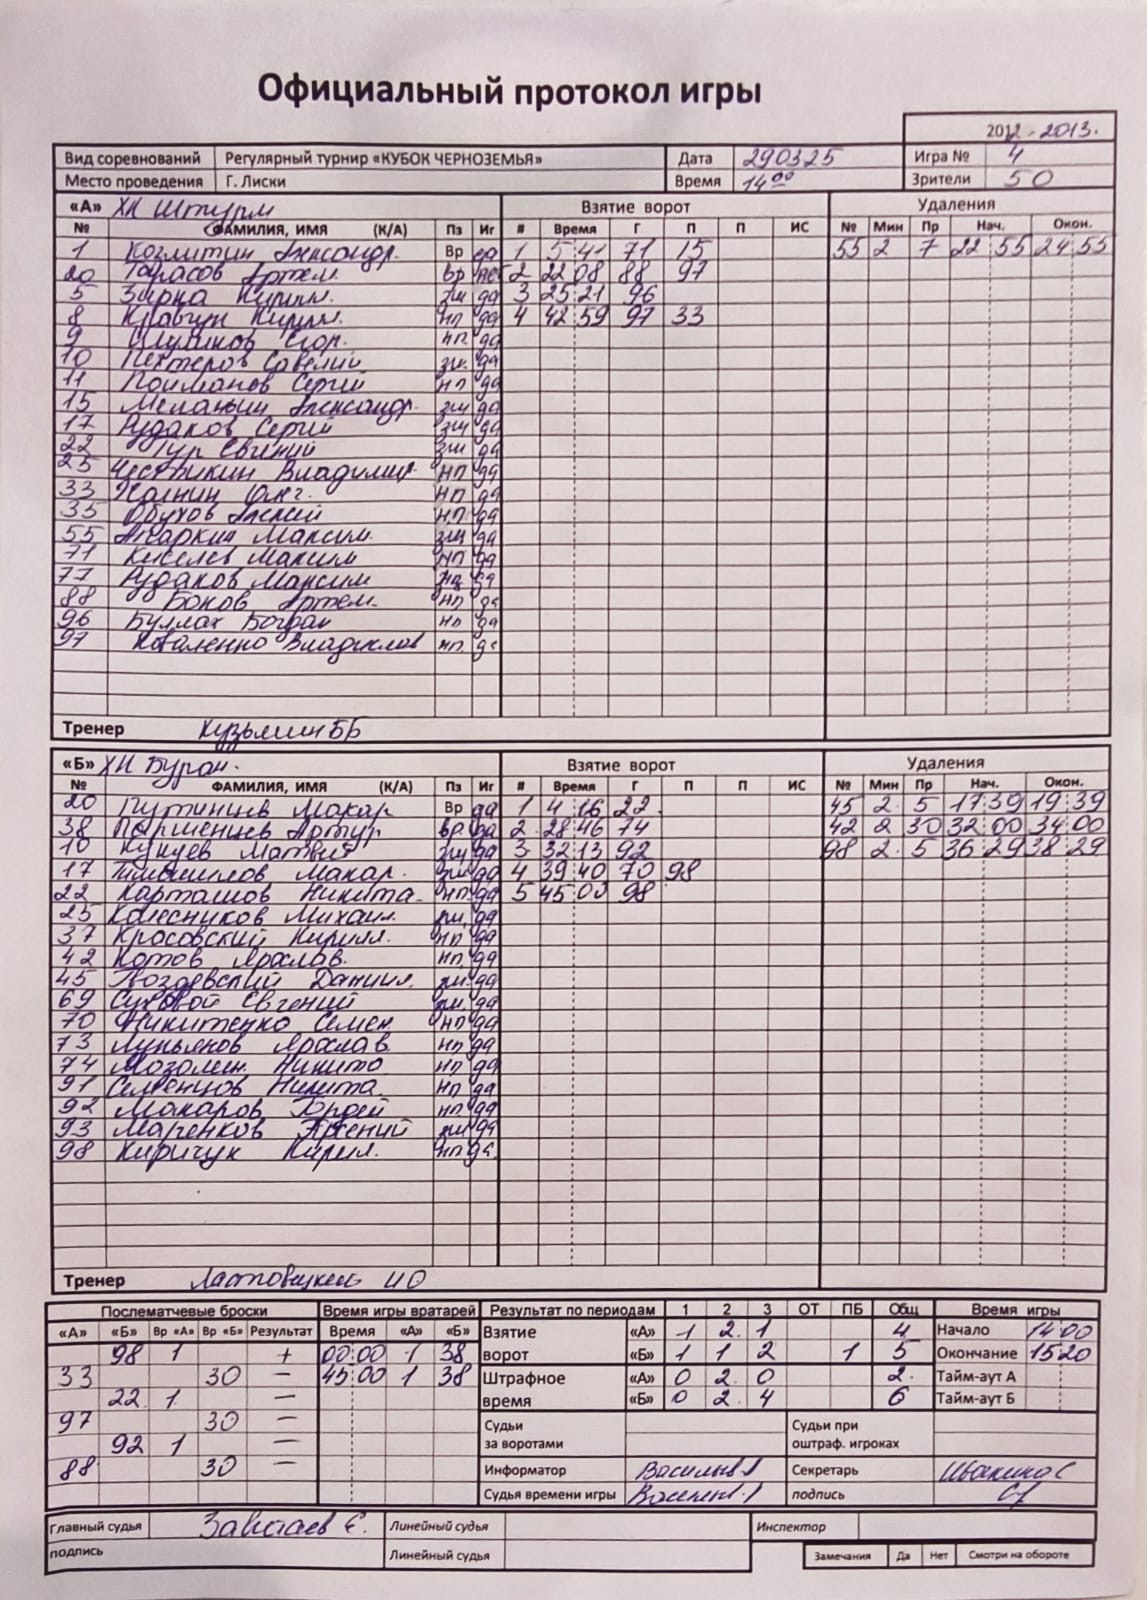 Официальный протокол игры
2012-2013.
Вид соревнований Регулярный турнир «КУБОК ЧЕРНОЗЕМЬЯ» Дата 290325 Игра № 4
Место проведения Г. Лиски Время 14⁰⁰ Зрители 50
«А» ХК Штурм Взятие ворот Удаления
№ ФАМИЛИЯ, ИМЯ (К/А) Пз Иг # Время Г П П ИС № Мин Пр Нач. Окон.
1 Александр. Вр да 1 5 41 71 15 55 2 7 22 55 24 55
20 Тарасов Артем. вр 2 22 08 88 97
5 Зирка Кирилл. зщ да 3 25 21 96
8 Кравчук Кирилл. нп да 4 42 59 97 33
9 Егор. нп да
10 Пехтерев Савелий зщ да
11 Пойманов Сергей нп да
15 Меланьин Александр. зщ да
17 Рудаков Сергей зщ да
22 Гур Евгений зщ да
25 Владимир нп да
33 Олег. нп да
35 Обухов Алексей нп да
55 Аккаркин Максим. зщ да
71 Киселев Максим нп да
77 Рудаков Максим зщ да
88 Боков Артем. нп да
96 Буллах Богдан нп да
97 Коваленко Владислав нп. да
Тренер Кузьмин ББ
«Б» ХК Буран. Взятие ворот Удаления
№ ФАМИЛИЯ, ИМЯ (К/А) Пз Иг # Время Г П П ИС № Мин Пр Нач. Окон.
20 Путинцев Макар Вр да 1 4 16 22. 45 2 5 17 39 19 39
38 Паршенцев Артур вр да 2 28 46 74 42 2 30 32 00 34 00
10 Кукуев Матвей зщ да 3 32 13 92 98 2 5 36 29 38 29
17 Макар. зщ да 4 39 40 70 98
22 Карташов Никита нп да 5 45 00 98
25 Колесников Михаил. зщ да
37 Кросовский Кирилл. нп да
42 Котов Ярослав. нп да
45 Лозоевский Даниил. зщ да
69 Суховой Евгений зщ да
70 Никитенко Семен нп да
73 Лукьянов Ярослав нп да
74 Мозалев. Никита нп да
91 Семенцов Никита. нп да
92 Макаров Гордей нп да
93 Марченков Арсений зщ да
98 Киричук Кирил. нп да.
Тренер ИО
Послематчевые броски Время игры вратарей Результат по периодам 1 2 3 ОТ ПБ Общ Время игры
«А» «Б» Вр «А» Вр «Б» Результат Время «А» «Б» Взятие «А» 1 2. 1 4 Начало 14 00
98 1 + 00:00 1 38 ворот «Б» 1 1 2 1 5 Окончание 15 20
33 30 — 45:00 1 38 Штрафное «А» 0 2 0 2. Тайм-аут А
22 1 — время «Б» 0 2 4 6 Тайм-аут Б
97 30 — Судьи Судьи при
92 1 — за воротами оштраф. игроках
88 30 — Информатор Секретарь
Судья времени игры подпись
Главный судья Е. Линейный судья Инспектор
подпись Линейный судья Замечания Да Нет Смотри на обороте